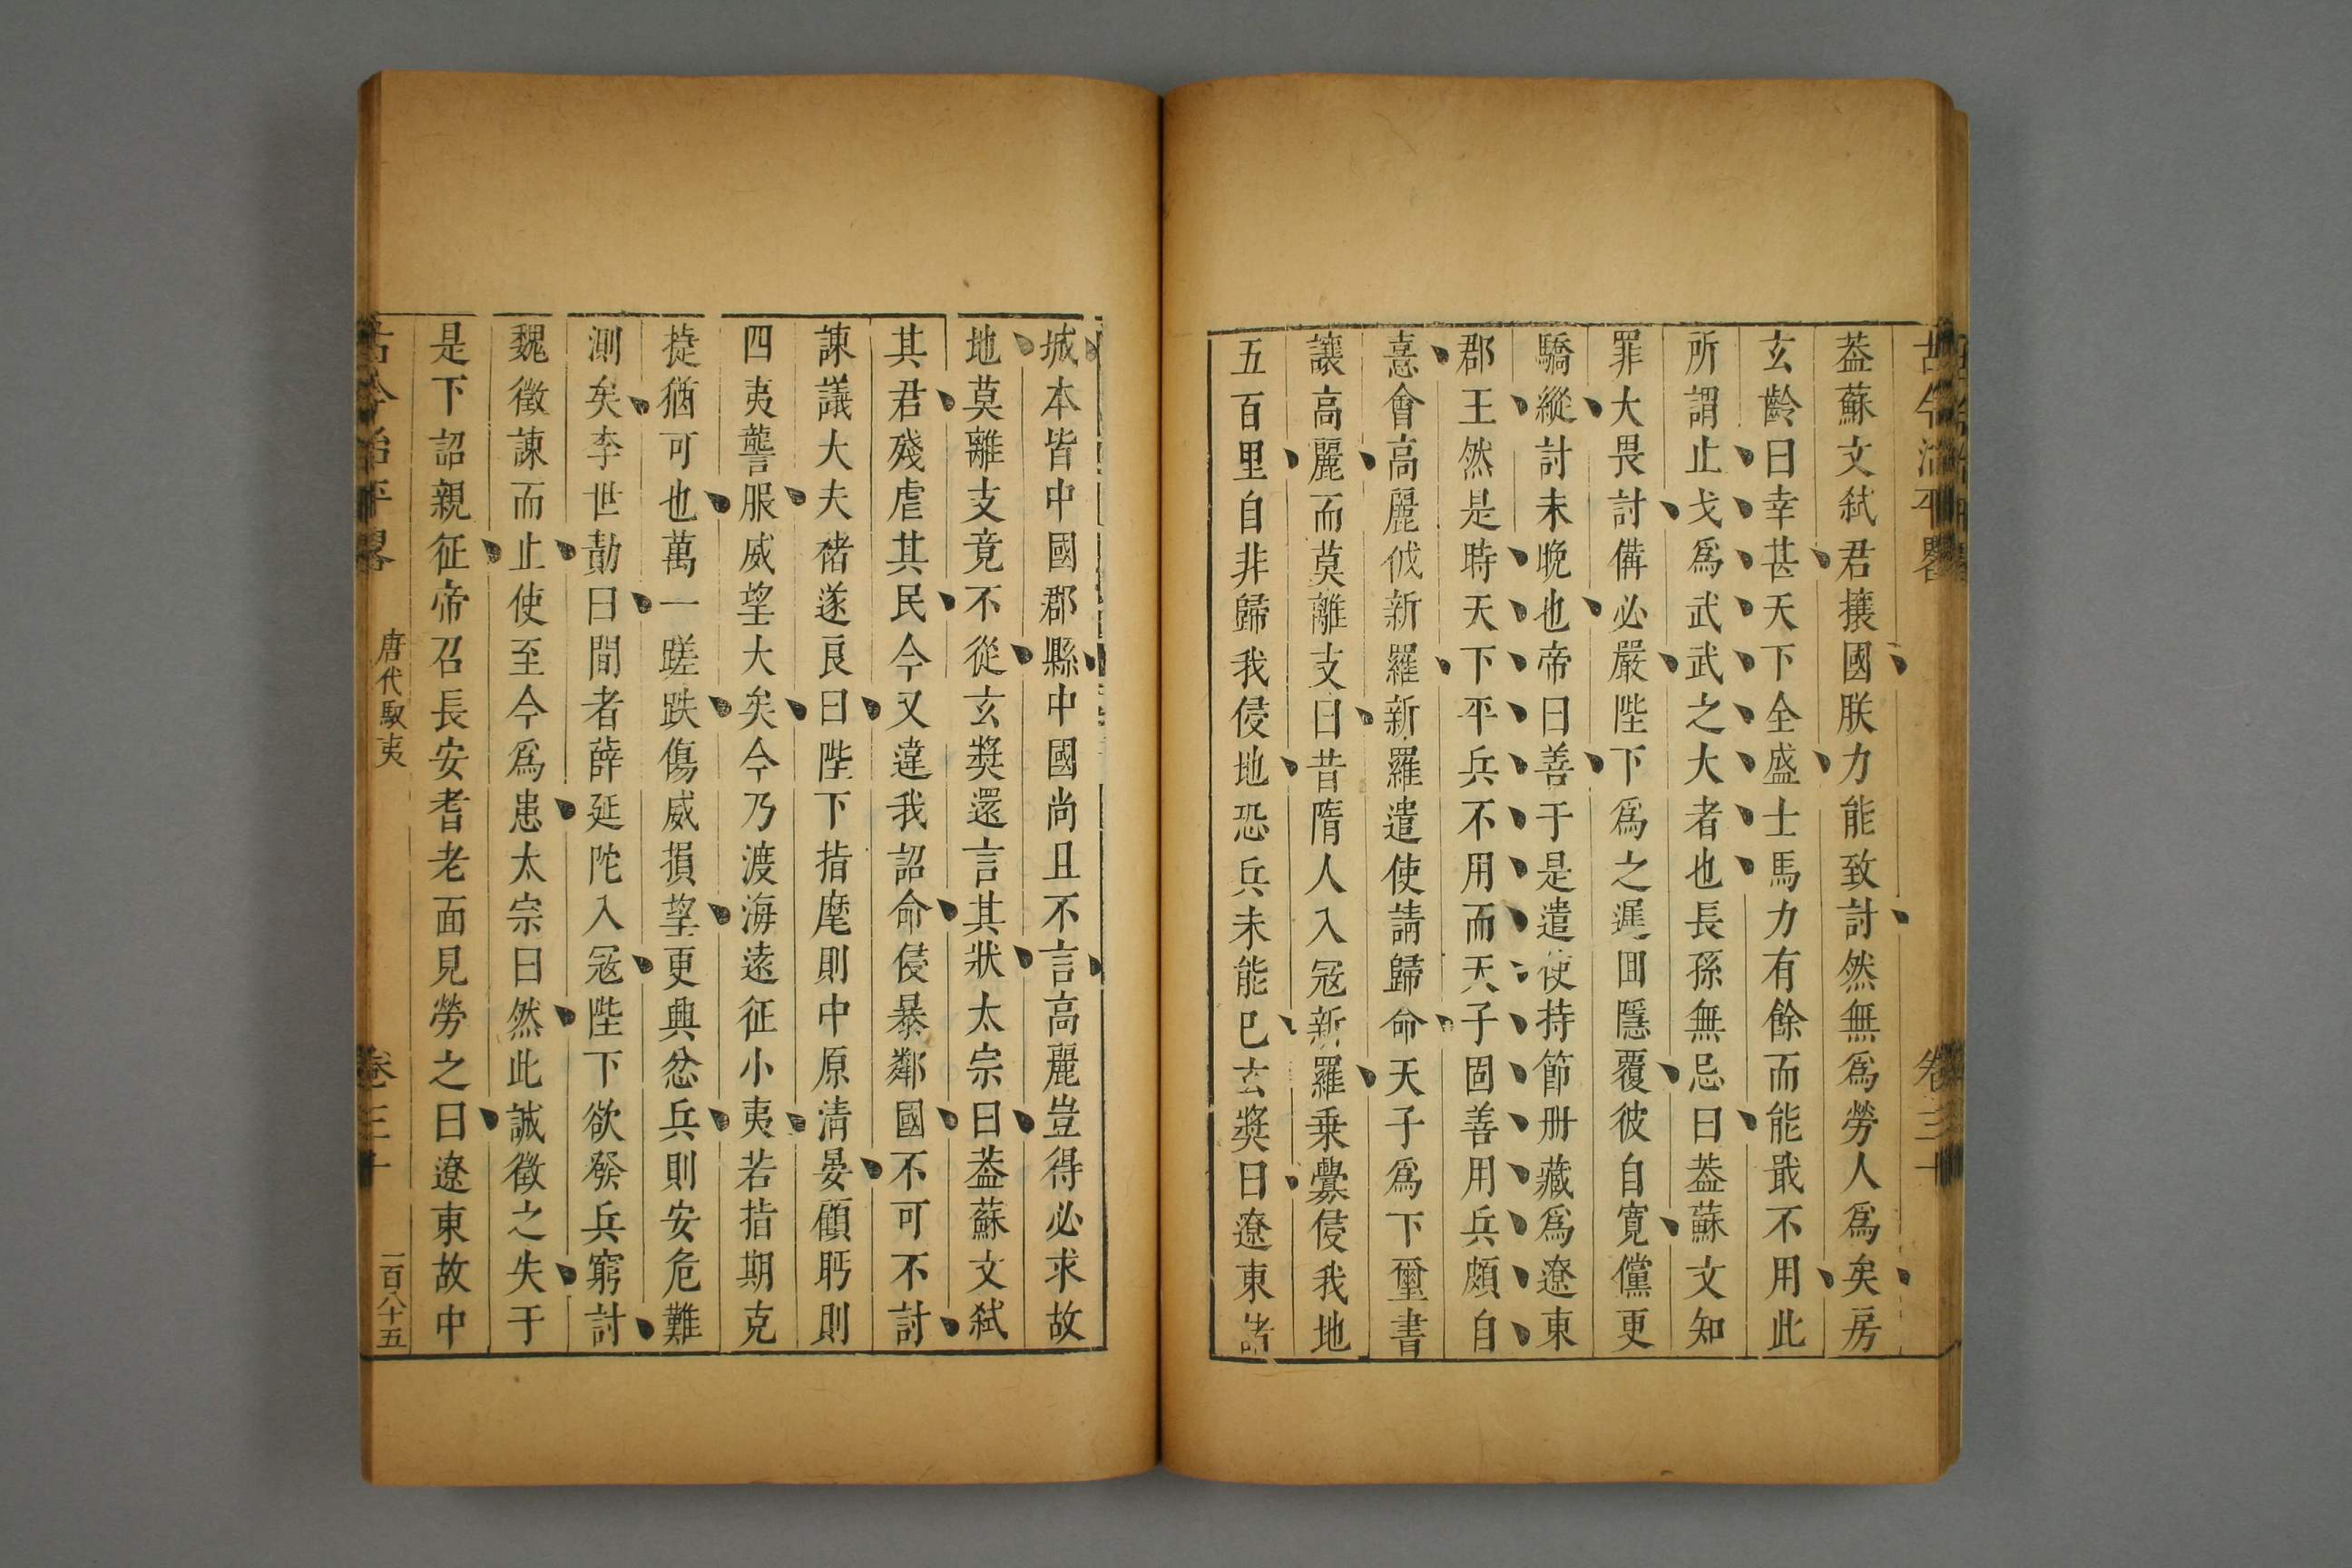 古今治平畧 卷三十
葢蘇文弑君攘國朕力能致討然無爲勞人爲矣房
玄齡曰幸甚天下全盛士馬力有餘而能戢不用此
所謂止戈爲武武之大者也長孫無忌曰葢蘇文知
罪大畏討備必嚴陛下爲之遲回隱覆彼自寛儻更
驕縱討未晚也帝曰善于是遣使持節册藏爲遼東
郡王然是時天下平兵不用而天子固善用兵頗自
憙會高麗伐新羅新羅遣使請歸命天子爲下璽書
讓高麗而莫離支曰昔隋人入冦新羅乗釁侵我地
五百里自非歸我侵地恐兵未能已玄奬曰遼東諸
城本皆中國郡縣中國尚且不言高麗豈得必求故
地莫離支竟不從玄奬還言其狀太宗曰葢蘇文弑
其君殘虐其民今又違我詔命侵暴鄰國不可不討
諫議大夫禇遂良曰陛下指麾則中原清晏顧眄則
四夷讋服威望大矣今乃渡海遠征小夷若指期克
捷猶可也萬一蹉跌傷威損望更興忿兵則安危難
測矣李世勣曰間者薛延陀入冦陛下欲發兵窮討
魏徵諫而止使至今爲患太宗曰然此誠徵之失于
是下詔親征帝召長安耆老面見勞之曰遼東故中
古今治平畧 唐代馭夷 卷三十 一百八十五